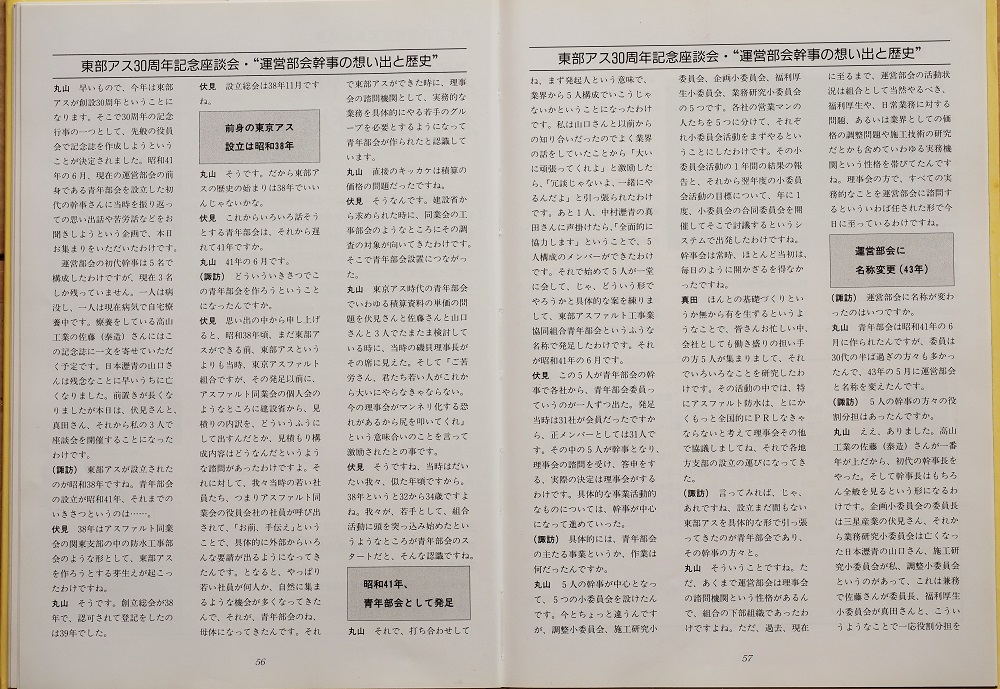 東部アス30周年記念座談会・“運営部会幹事の想い出と歴史”
丸山　早いもので、今年は東部
アスが創設30周年ということに
なります。そこで30周年の記念
行事の一つとして、先般の役員
会で記念誌を作成しようという
ことが決定されました。昭和41
年の6月、現在の運営部会の前
身である青年部会を設立した初
代の幹事さんに当時を振り返っ
ての思い出話や苦労話などをお
聞きしようという企画で、本日
お集まりをいただいたわけです。
　運営部会の初代幹事は5名で
構成したわけですが、現在3名
しか残っていません。一人は病
没し、一人は現在病気で自宅療
養中です。療養をしている高山
工業の佐藤（泰造）さんにはこ
の記念誌に一文を寄せていただ
く予定です。日本瀝青の山口さ
んは残念なことに早いうちに亡
くなりました。前置きが長くな
りましたが本日は、伏見さんと、
真田さん、それから私の3人で
座談会を開催することになった
わけです。
（諏訪）　東部アスが設立された
のが昭和38年ですね。青年部会
の設立が昭和41年、それまでの
いきさつというのは……。
伏見　38年はアスファルト同業
会の関東支部の中の防水工事部
会のような形として、東部アス
を作ろうとする芽生えが起こっ
たわけですね。
丸山　そうです。創立総会が38
年で、認可されて登記をしたの
は39年でした。
伏見　設立総会は38年11月です
ね。
前身の東京アス
設立は昭和38年
丸山　そうです。だから東部ア
スの歴史の始まりは38年でいい
んじゃないかな。
伏見　これからいろいろ話そう
とする青年部会は、それから遅
れて41年ですか。
丸山　41年の6月です。
（諏訪）　どういういきさつでこ
の青年部会を作ろうということ
になったんですか。
伏見　思い出の中から申し上げ
ると、昭和38年頃、まだ東部ア
スができる前、東部アスという
よりも当時、東京アスファルト
組合ですが、その発足以前に、
アスファルト同業会の個人会の
ようなところに建設省から、見
積りの内訳を、どういうふうに
して出すんだとか、見積もり構
成内容はどうなんだというよう
な諮問があったわけですよ。そ
れに対して、我々当時の若い社
員たち、つまりアスファルト同
業会の役員会社の社員が呼び出
されて、「お前、手伝え」という
ことで、具体的に外部からいろ
んな要請が出るようになってき
たんです。となると、やっぱり
若い社員が何人か、自然に集ま
るような機会が多くなってきた
んで、それが、青年部会のね、
母体になってきたんです。それ
で東部アスができた時に、理事
会の諮問機関として、実務的な
業務を具体的にやる若手のグル
ープを必要とするようになって
青年部会が作られたと認識して
います。
丸山　直接のキッカケは積算の
価格の問題だったですね。
伏見　そうなんです。建設省か
ら求められた時に、同業会の工
事部会のようなところにその調
査の対象が向いてきたわけです。
そこで青年部会設置につながっ
た。
丸山　東京アス時代の青年部会
でいわゆる積算資料の単価の問
題を伏見さんと佐藤さんと山口
さんと3人でたまたま検討して
いる時に、当時の磯貝理事長が
その席に見えた。そして「ご苦
労さん、君たち若い人がこれか
ら大いにやらなきゃならない。
今の理事会がマンネリ化する恐
れがあるから尻を叩いてくれ」
という意味合いのことを言って
激励されたとの事です。
伏見　そうですね、当時はだい
たい我々、似た年頃ですから。
38年というと32から34歳ですよ
ね。我々が、若手として、組合
活動に頭を突っ込み始めたとい
うようなところが青年部会のス
タートだと、そんな認識ですね。
昭和41年、
青年部会として発足
丸山　それで、打ち合わせして
56
東部アス30周年記念座談会・“運営部会幹事の想い出と歴史”
ね、まず発起人という意味で、
業界から5人構成でいこうじゃ
ないかということになったわけ
です。私は山口さんと以前から
の知り合いだったのでよく業界
の話をしていたことから「大い
に頑張ってくれよ」と激励した
ら、「冗談じゃないよ、一緒にや
るんだよ」と引っ張られたわけ
です。あと1人、中村瀝青の真
田さんに声掛けたら、「全面的に
協力します」ということで、5
人構成のメンバーができたわけ
です。それで始めて5人が一堂
に会して、じゃ、どういう形で
やろうかと具体的な案を練りま
して、東部アスファルト工事業
協同組合青年部会というふうな
名称で発足したわけです。それ
が昭和41年の6月です。
伏見　この5人が青年部会の幹
事で各社から、青年部会委員っ
ていうのが一人ずつ出た。発足
当時は31社が会員だったですか
ら、正メンバーとしては31人で
す。その中の5人が幹事となり、
理事会の諮問を受け、答申をす
る、実際の決定は理事会がする
わけです。具体的な事業活動的
なものについては、幹事が中心
になって進めていった。
（諏訪）　具体的には、青年部会
の主たる事業というか、作業は
何だったんですか。
丸山　5人の幹事が中心となっ
て、5つの小委員会を設けたん
です。今とちょっと違うんです
が、調整小委員会、施工研究小
委員会、企画小委員会、福利厚
生小委員会、業務研究小委員会
の5つです。各社の営業マンの
人たちを5つに分けて、それぞ
れ小委員会活動をまずやるとい
うことにしたわけです。その小
委員会活動の1年間の結果の報
告と、それから翌年度の小委員
会活動の目標について、年に1
度、小委員会の合同委員会を開
催してそこで討議するというシ
ステムで出発したわけですね。
幹事会は常時、ほとんど当初は、
毎日のように開かざるを得なか
ったですね。
真田　ほんとの基礎づくりとい
うか無から有を生ずるというよ
うなことで、皆さんお忙しい中、
会社としても働き盛りの担い手
の方5人が集まりまして、それ
でいろいろなことを研究したわ
けです。その活動の中では、特
にアスファルト防水は、とにか
くもっと全国的にPRしなきゃ
ならないと考えて理事会その他
で協議しましてね、それで各地
方支部の設立の運びになってき
た。
（諏訪）　言ってみれば、じゃ、
あれですね、設立まだ間もない
東部アスを具体的な形で引っ張
ってきたのが青年部会であり、
その幹事の方々と。
丸山　そういうことですね。た
だ、あくまで運営部会は理事会
の諮問機関という性格があるん
で、組合の下部組織であったわ
けですよね。ただ、過去、現在
に至るまで、運営部会の活動状
況は組合として当然やるべき、
福利厚生や、日常業務に対する
問題、あるいは業界としての価
格の調整問題や施工技術の研究
だとかも含めていわゆる実務機
関という性格を帯びてたんです
ね。理事会の方で、すべての実
務的なことを運営部会に諮問す
るといういわば任された形で今
日に至っているわけですね。
運営部会に
名称変更（43年）
（諏訪）　運営部会に名称が変わ
ったのはいつですか。
丸山　青年部会は昭和41年の6
月に作られたんですが、委員は
30代の半ば過ぎの方々も多かっ
たんで、43年の5月に運営部会
と名称を変えたんです。
（諏訪）　5人の幹事の方々の役
割分担はあったんですか。
丸山　ええ、ありました。高山
工業の佐藤（泰造）さんが一番
年が上だから、初代の幹事長を
やった。そして幹事長はもちろ
ん全般を見るという形になるわ
けです。企画小委員会の委員長
は三星産業の伏見さん、それか
ら業務研究小委員会は亡くなっ
た日本瀝青の山口さん、施工研
究小委員会が私、調整小委員会
というのがあって、これは兼務
で佐藤さんが委員長、福利厚生
小委員会が真田さんと、こうい
うようなことで一応役割分担を
57